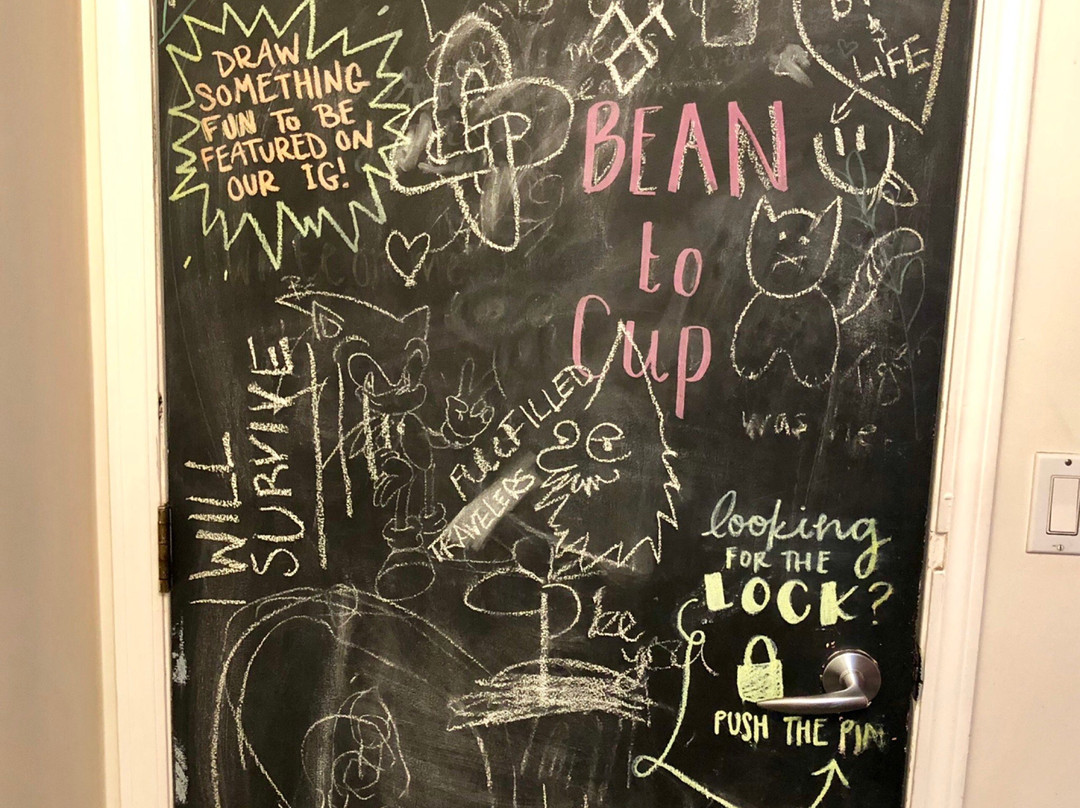 DRAW
SOMETHING
FUN TO BE
FEATURED ON
OUR IG!
LIFE
BEAN
to
Cup
WILL
SURVIVE
FULFILLED
TRAVELERS
was
be
you
looking
FOR THE
LOCK?
PUSH THE PIN